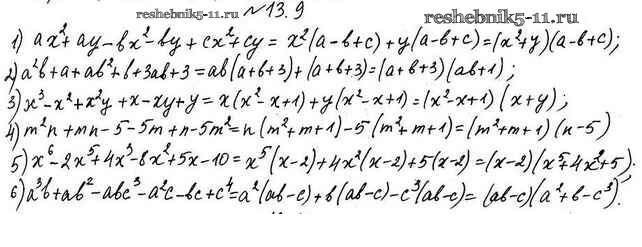 reshebnik5-11.ru
№13.9
reshebnik5-11.ru
1) ax²+ay-bx²-by+cx²+cy=x²(a-b+c)+y(a-b+c)=(x²+y)(a-b+c);
2) a²b+a+ab²+b+3ab+3=ab(a+b+3)+(a+b+3)=(a+b+3)(ab+1);
3) x³-x²+x²y+x-xy+y=x(x²-x+1)+y(x²-x+1)=(x²-x+1)(x+y);
4) m²n+mn-5-5m+n-5m²=n(m²+m+1)-5(m²+m+1)=(m²+m+1)(n-5)
5) x⁶-2x⁵+4x³-8x²+5x-10=x⁵(x-2)+4x²(x-2)+5(x-2)=(x-2)(x⁵+4x²+5).
6) a³b+ab²-abc³-a²c-bc+c⁴=a²(ab-c)+b(ab-c)-c³(ab-c)=(ab-c)(a²+b-c³).